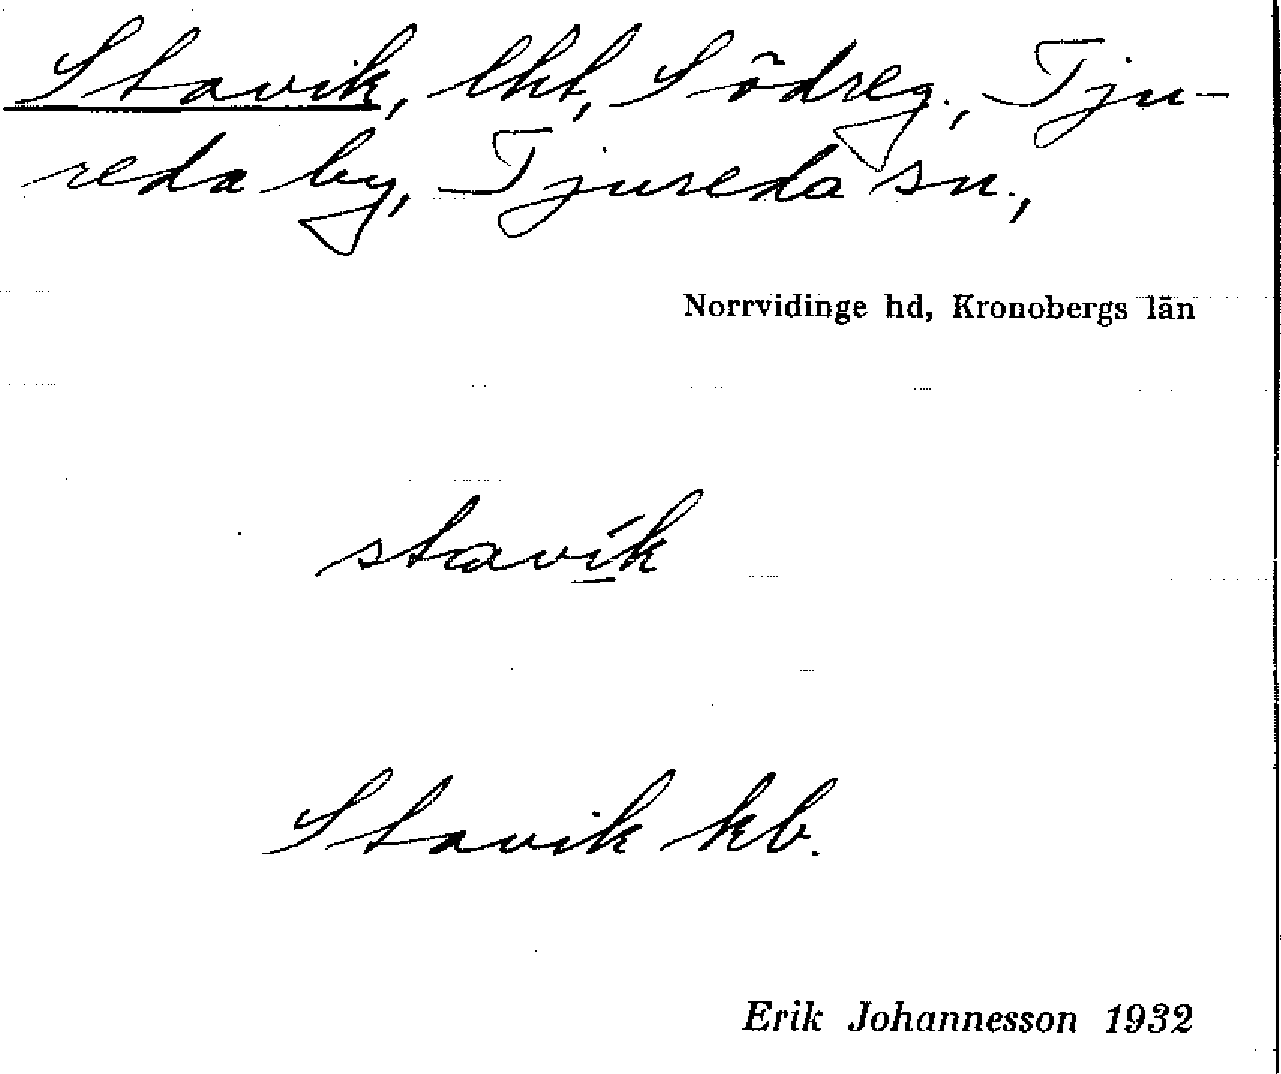 Stavik, lht, Södreg., Tju-
reda by, Tjureda sn.,
Norrvidinge hd, Kronobergs län
stavik
Stavik kb.
Erik Johannesson 1932